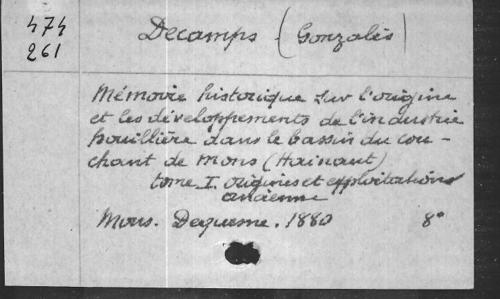 474
261
Decamps (Gonzalès)
Mémoire historique sur l'origine
et les développements de l'industrie
houillière dans le bassin du cou-
chant de Mons (Hainaut)
tome I. origines et exploitations
ancienne
Mons. Dequesne. 1880 8°